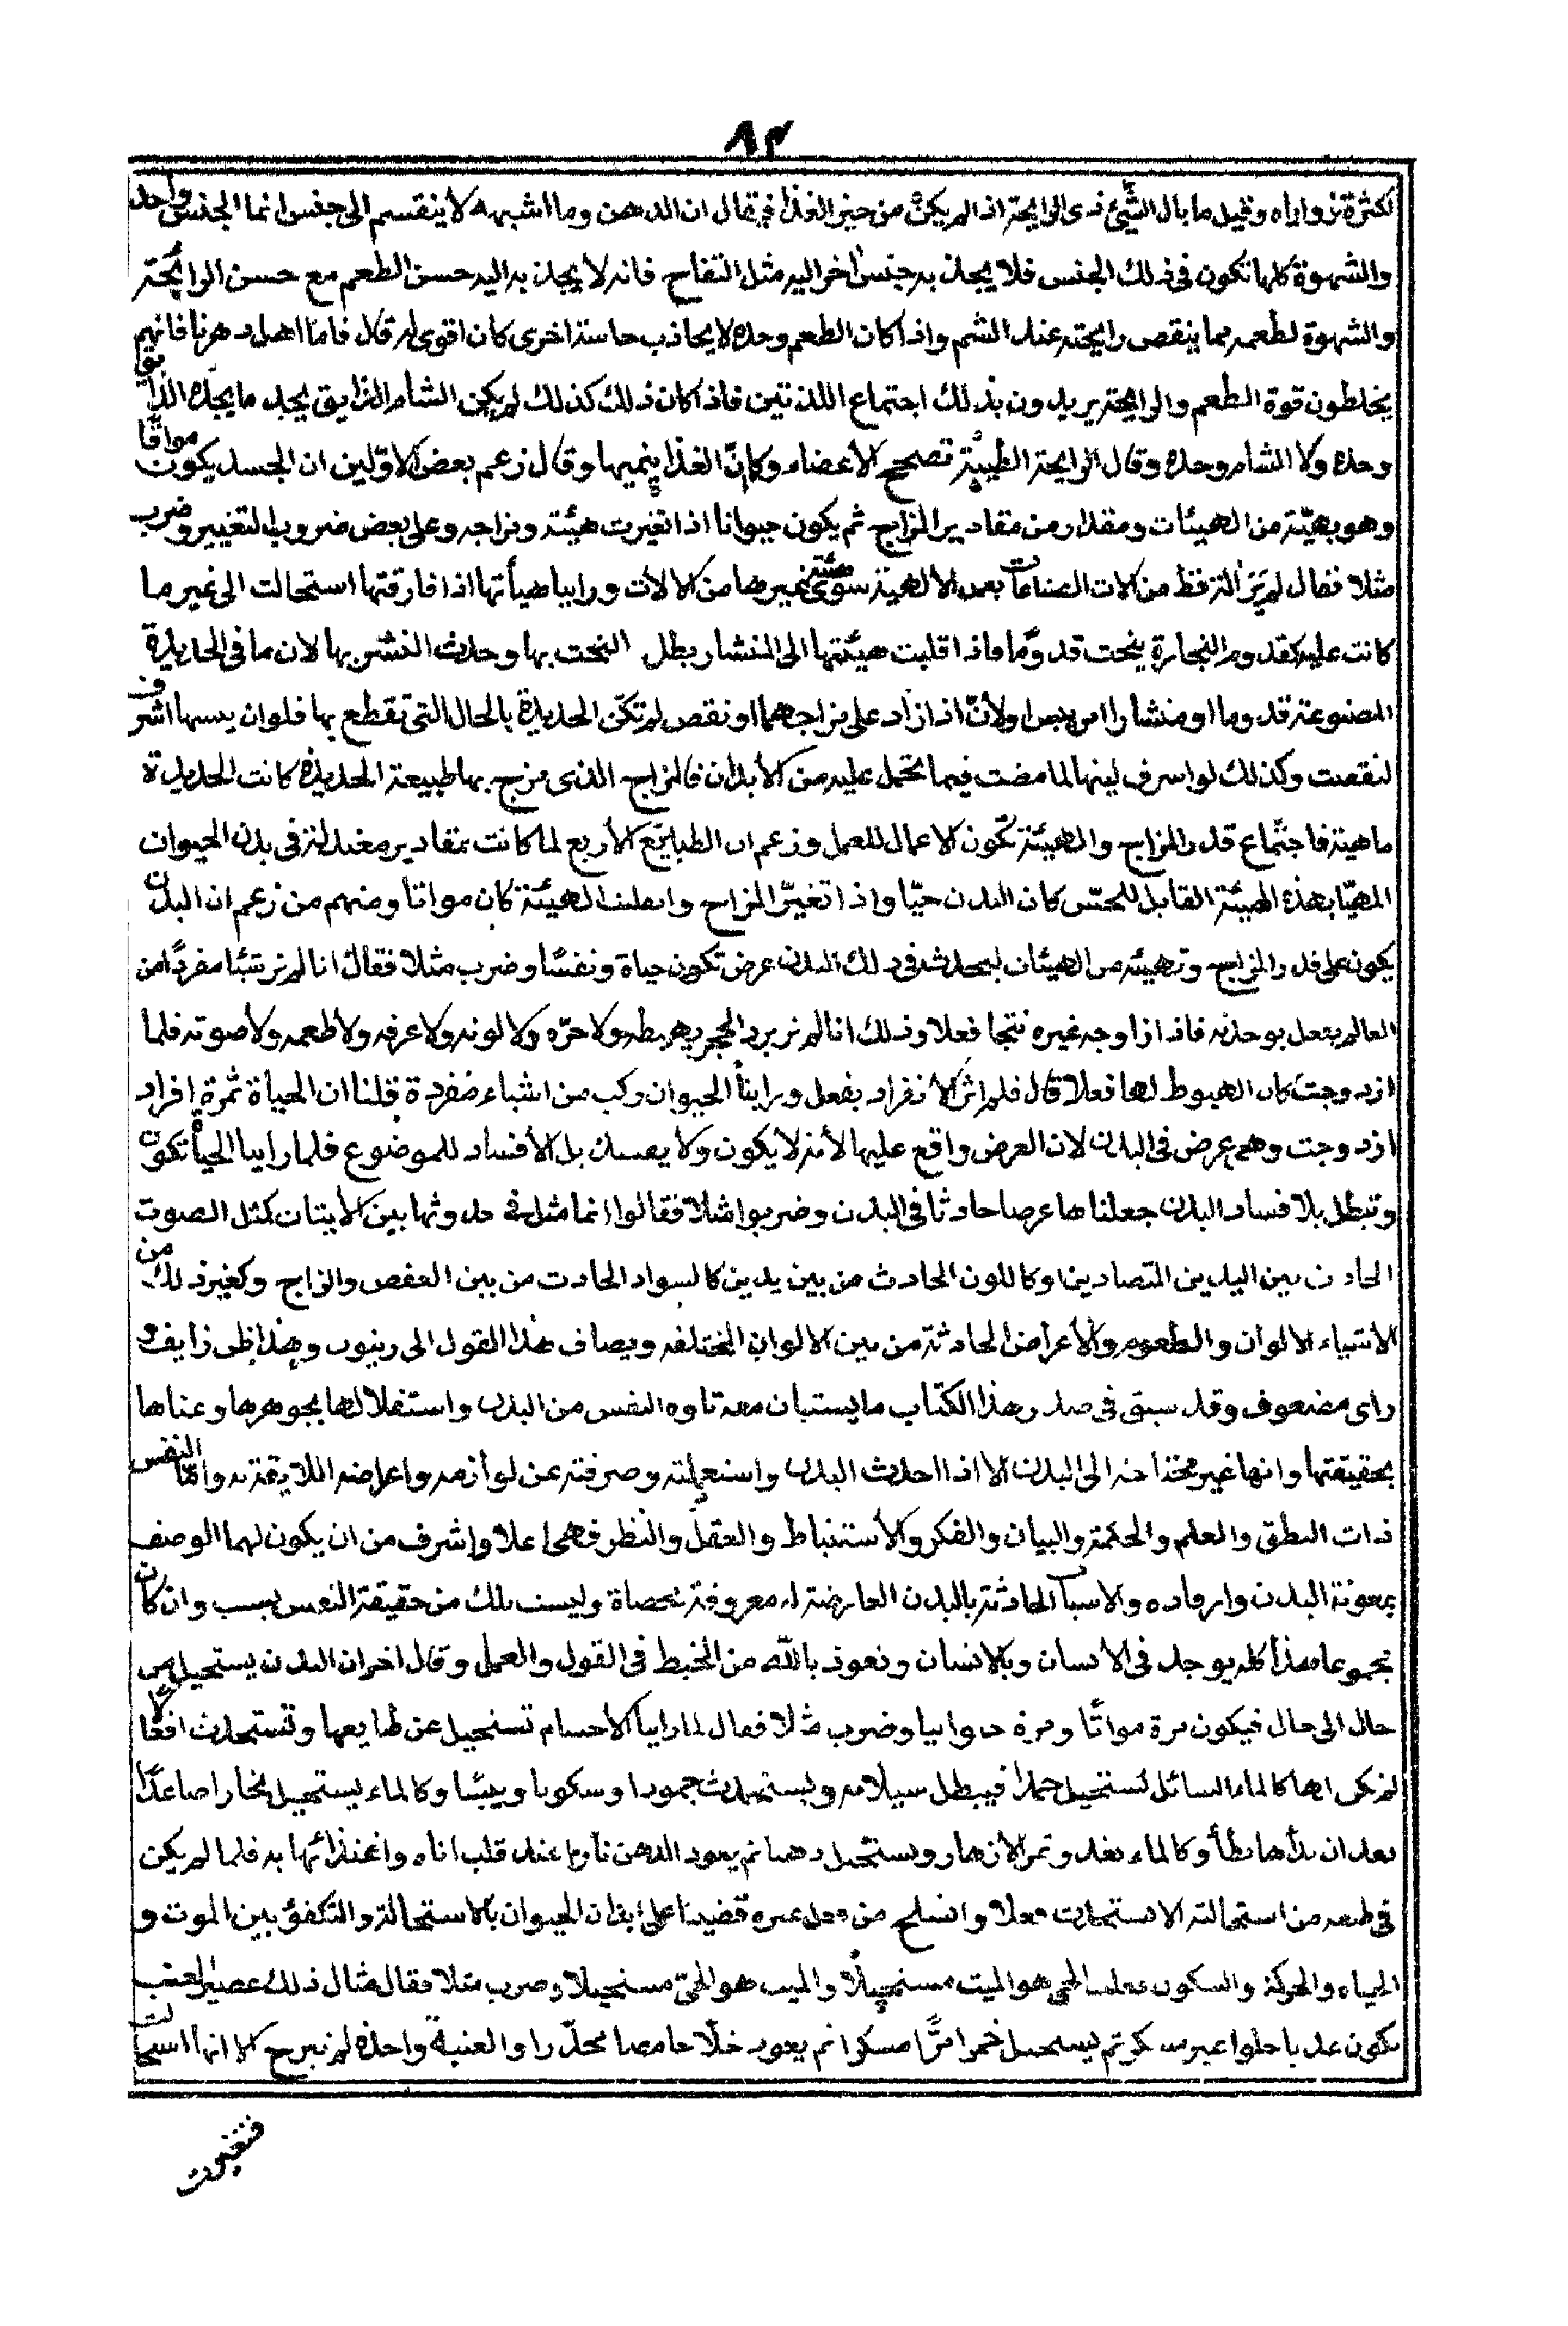 ٨٣
لكثرة زواياه وقيل ما بال الشئ ذى الرايحة اذا لم يكن من حيز الغذا فقال ان الدهن وما اشبهه لا ينقسم الى جنس انما الجنس واحد
والشهوة كلها تكون فى ذلك الجنس فلا يجذب به جنس اخر اليه مثل التفاح فانه لا يجذب به اليه حسن الطعم مع حسن الرايحة
والشهوة لطعمه مما ينقص رايحته عند الشم واذا كان الطعم وحده لا يجاذب حاسة اخرى كان اقوى له قال فاما اهل دهرنا فانهم
يخلطون قوة الطعم والرايحة يريدون بذلك اجتماع اللذتين فاذا كان ذلك كذلك لم يكن الشام الذايق يجد ما يجده الذايق
وحده ولا الشام وحده وقال الرايحة الطيبة تصحح الأعضاء وكانّ الغذا ينميها وقال زعم بعض الاوّلين ان الجسد يكون مواتًا
وهو بهيّئة من الهيئات ومقدار من مقادير المزاج ثم يكون حيوانا اذا تغيرت هيئته ومزاجه وعلى بعض ضروب التغيير وضرب
مثلا فقال لم نر آلة قط من آلات الصناعات بعد الالهية سوى غيرها من الالات وراينا هيأتها اذا فارقتها استحالت الى غير ما
كانت عليه كقدوم النجارة ينحت قدومًا فاذا قلبت هيئتها الى المنشار بطل النحت بها وحدث النشر بها لان ما فى الحديدة
المصنوعة قدوما او منشارا من يبس اولأنّ اذا زاد على مزاجهما او نقص لم تكن الحديدة بالحال التى تقطع بها فلو ان يبسها اشرف
لنقصت وكذلك لو اسرف لينها لما مضت فيما تحمل عليه من الأبدان فالمزاج الذى مزج بها طبيعة الحديدة كانت الحديدة
ماهية فاجتماع قدر المزاج والهيئة تكون الاعمال للعمل وزعم ان الطبايع الأربع لما كانت بمقادير معتدلة فى بدن الحيوان
المهيّا بهذه الهيئة القابل للحسّ كان البدن حيّا واذا تغيّر المزاج وانقلبت الهيئة كان مواتا ومنهم من زعم ان البدن
يكون على قدر المزاج وتهيئة من الهيئات ليحدث فى ذلك البدن عرض تكون حياة ونفسًا وضرب مثلا فقال انا لم نر شيئا مفردًا من
العالم يفعل بوحدته فاذا ازاوجه غيره نتجا فعلا وذلك انا لم نر برد الحجر يهبطه ولا حرّه ولا لونه ولا عرفه ولا طعمه ولا صوته فلما
ازدوجت كان الهبوط لها فعلا قال فلم نر الانفراد يفعل وراينا الحيوان ركب من اشياء مفردة قلنا ان الحياة ثمرة افراد
ازدوجت وهى عرض فى البدن لان العرض واقع عليها لأنه لا يكون ولا يمسك بل الأفساد للموضوع فلما راينا الحياة تكون
وتبطل بلا فساد البدن جعلناها عرضا حادثا فى البدن وضربوا مثلا فقالوا انما مثل فى حدوثها بين كمثل الصوت
الحادث بين اليدين المتصادين او كاللون الحادث من بين يدين كالسواد الحادث من بين العفص والزاج وكغير ذلك من
الاشياء الالوان والطعوم والأعراض الحادثة من بين الالوان المختلفه ويضاف هذا القول الى زينون وهذا ظن زايف و
راى مضعوف وقد سبق فى صدر هذا الكتاب ما يستبان معه تاوه النفس من البدن واستقلالها بجوهرها وغناها
بحقيقتها وانها غير محتاجه الى البدن الا اذا احدث البدن واستعملته وصرفته عن لوازمه واعراضه اللايقة به وامّا النفس
ذات النطق والعلم والحكمة والبيان والفكر والأستنباط والعقل والنظر فهى اعلا واشرف من ان يكون لهما الوصف
بمعونة البدن وارفاده والاسباب الحادثة بالبدن العارضة له معروفة محصاة وليست تلك من حقيقة النفس بسبب وان كان
مجموعا هذا كله يوجد فى الأنسان وبالانسان ونعوذ بالله من الخبط فى القول والعمل وقال اخر ان البدن يستحيل من
حال الى حال فيكون مرة مواتًا ومرة حيوانيا وضرب مثلا فقال لما راينا الأجسام تستحيل عن طبايعها وتستحدث افعالًا
لم نكن لها كالماء السائل يستحيل جمدا فيبطل سيلانه ويستحدث جمودا وسكونا ويبسا وكالماء يستحيل بخارا صاعدًا
بعد ان كالماء يغذو ثمر الازهار ويستحيل دهنا ثم يعود الدهن نارا عند قلب اناه واغتذائها به فلما لم يكن
فى طبعه من استحالته الا استحدث فعلا وانسلخ من فعل غيره قضينا على ابدان الحيوان بالاستحالة والتكفؤ بين الموت و
الحياه والحركة والسكون فعلمنا الحى هو الميت مستحيلًا والميت هو الحىّ مستحيلا وضرب مثلا فقال مثال ذلك عصير العنب
يكون عذبا حلوا غير مسكر ثم يستحيل خمرا مرًّا مسكرا ثم يعود خلّا حامضا مخدّرا والعنبة واحدة لم تبرح الا انها استحالت
فتغيرت